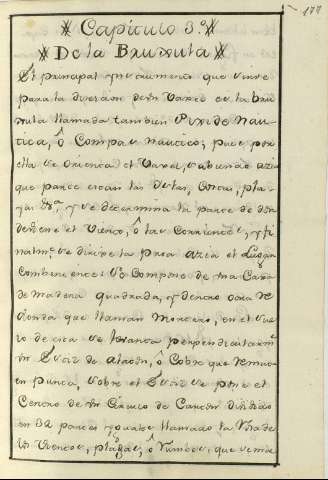 177
Capitulo 3.º
De la Bruxula
El principal ynstrumento que sirve
para la direccion de un Vaxel es la bru
xula llamada tambien Pixide Nau
tica, ô Compas nautico; pues por
ella se orienta el Vaxel, sabiendo azia
que parte estan las Yslas, Costas, pla
yas &.ª, y se determina la parte de don
de viene el Viento, ô las Corrientes, y fi
nalm.te se dirixe la proa azia el Lugar
combeniente: Se compone de una Caxa
de madera quadrada, y dentro otra re
donda que llaman Mortero, en el sue
lo de esta se levanta perpendicularm.te
un de alaton, ô Cobre que remata
en punta, sobre el se pone el
Centro de un Circulo de Carton dividido
en 32 partes yguales llamado la Rosa de
los Vientos, ô Rumbos, que